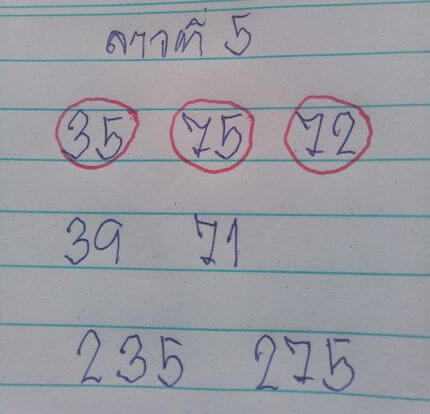 ลาวที่ 5
35 75 72
39 71
235 275